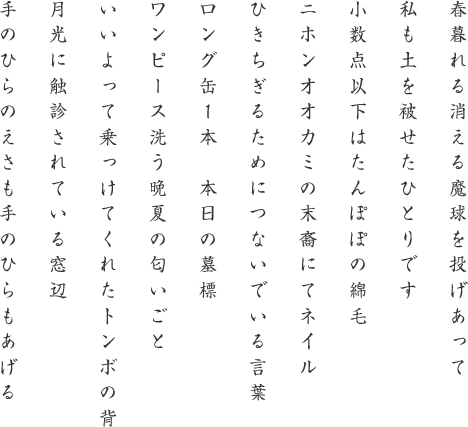 春暮れる消える魔球を投げあって
私も土を被せたひとりです
小数点以下はたんぽぽの綿毛
ニホンオオカミの末裔にてネイル
ひきちぎるためにつないでいる言葉
ロング缶1本　本日の墓標
ワンピース洗う晩夏の匂いごと
いいよって乗っけてくれたトンボの背
月光に触診されている窓辺
手のひらのえさも手のひらもあげる